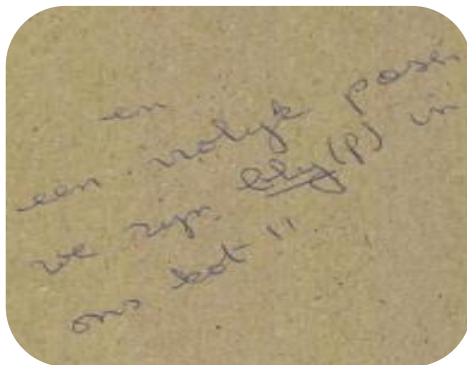 en
een vrolijk pasen
we zijn blij(f) in
ons kot !!